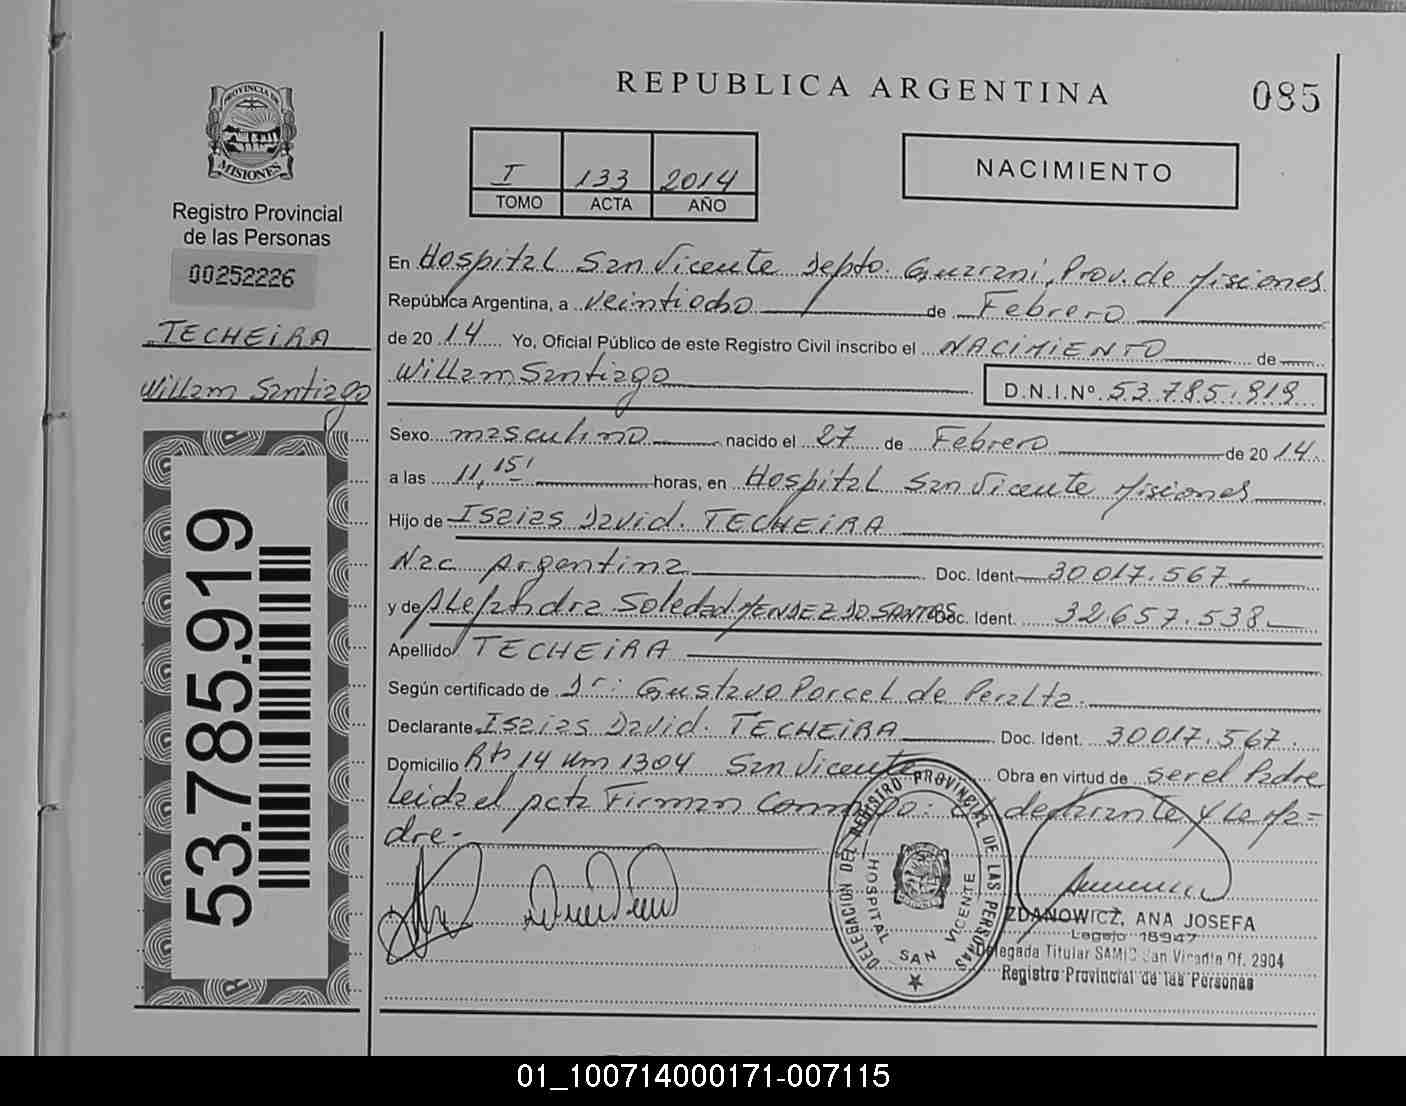 REPUBLICA ARGENTINA
085
PROVINCIA DE
MISIONES
Registro Provincial
de las Personas
00252226
TECHEIRA
Willam Santiago
53.785.919
I 133 2014
TOMO ACTA AÑO
NACIMIENTO
En Hospital San Vicente Depto. Guarani, Prov. de Misiones
República Argentina, a veintiocho de Febrero
de 20 14 Yo, Oficial Público de este Registro Civil inscribo el NACIMIENTO de
Willam Santiago D.N.I.Nº 53.785.919
Sexo masculino nacido el 27 de Febrero de 20 14
a las 11,15' horas, en Hospital San Vicente Misiones
Hijo de Isaias David. TECHEIRA
Nac Argentina Doc. Ident. 30017.567
y de Alejandra Soledad MENDEZ DO SANTOS Doc. Ident. 32.657.538
Apellido TECHEIRA
Según certificado de Dr: Gustavo Porcel de Peralta.
Declarante Isaias David. TECHEIRA Doc. Ident. 30017.567.
Domicilio Rta 14 Km 1304 San Vicente Obra en virtud de ser el Padre
Leida el acta Firman Conmigo: el declarante y La Ma=
dre-
DELEGACION DEL REGISTRO PROVINCIAL DE LAS PERSONAS
HOSPITAL SAN VICENTE
ZDANOWICZ, ANA JOSEFA
Legajo 18947
Delegada Titular SAMIC San Vicente Of. 2904
Registro Provincial de las Personas
01_100714000171-007115